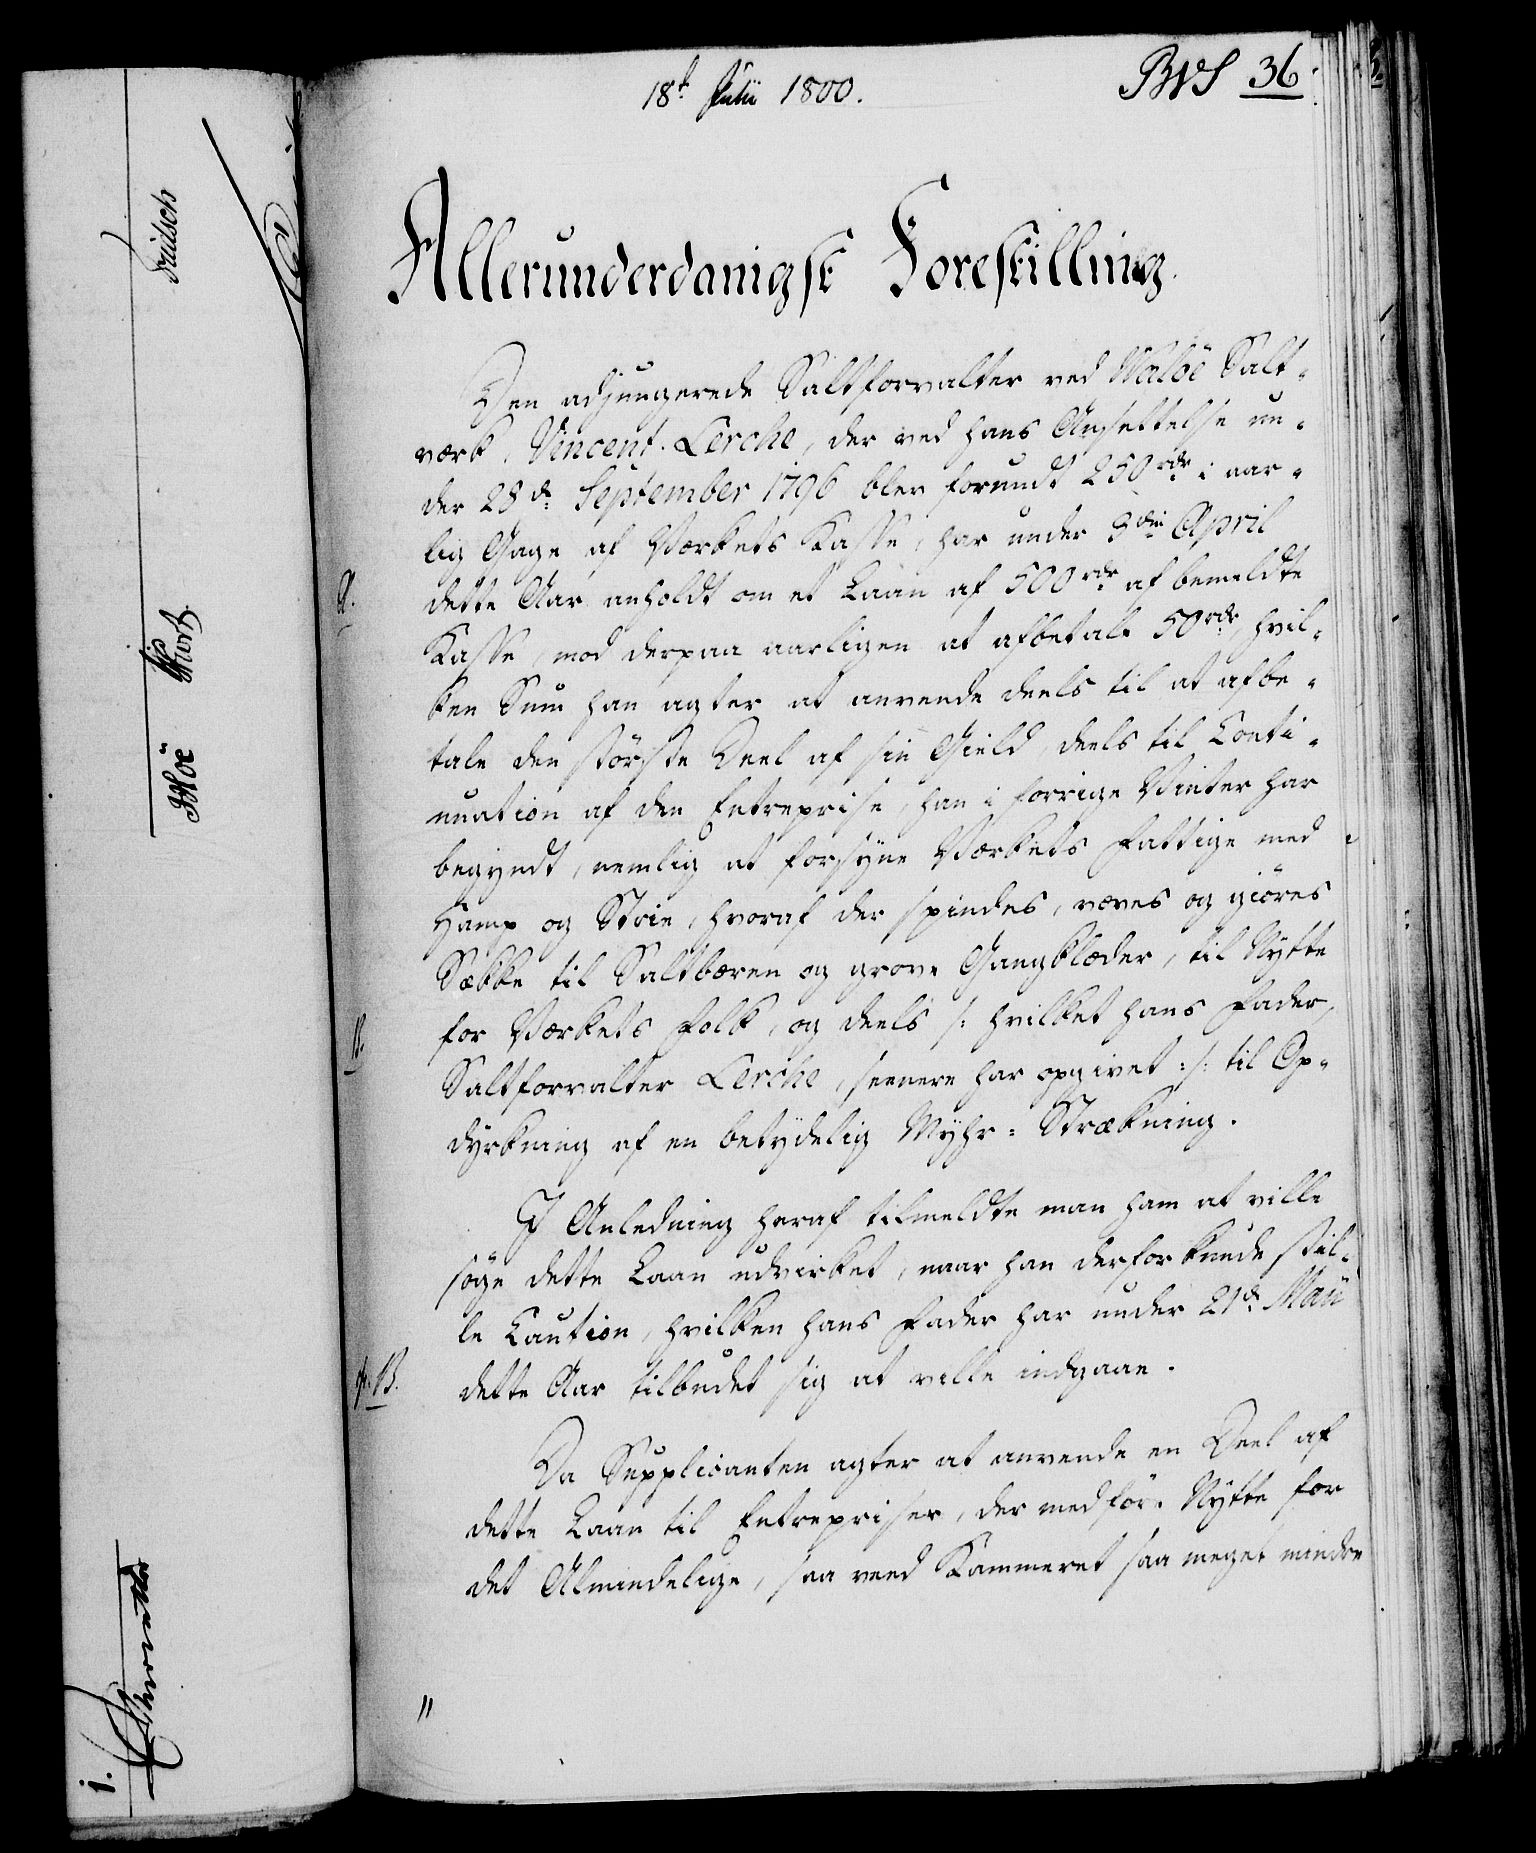 18t Julii 1800.
BWS 36
Allerunderdanigst Forestilling.
Den adjungerede Saltforvalter ved Waløe Salt-
værk, Vincent Lerche, der ved hans Ansettelse un-
der 28de September 1796 blev forundt 250 rdr i aar-
lig Gage af Værkets Kasse, har under 3die April
A.
dette Aar anholdt om et Laan af 500 rdr af bemeldte
Kasse, mod derpaa aarligen at afbetale 50 rdr, hvil-
ken Sum han agter at anvende deels til at afbe-
tale den störste Deel af sin Gield deels til Conti-
nuation af den Entreprise, han i forrige Vinter har
begyndt, nemlig at forsyne Værkets Fattige med
Hamp og Strie, hvoraf der spindes, væves og giöres
Sække til Saltbæren og grove Gangklæder, til Nytte
for Værkets Folk, og deels /: hvilket hans Fader,
B.
Saltforvalter Lerche, senere har opgivet :/ til Op-
dyrkning af en betydelig Myhr-Strækning.
I Anledning heraf tilmeldte man ham at ville
söge dette Laan udvirket, naar han derfor kunde stil-
le Caution, hvilken hans Fader har under 21de Maii
cfr. B.
dette Aar tilbudet sig at ville indgaae.
Da Supplicanten agter at anvende en Deel af
dette Laan til Entrepriser, der medföre Nytte for
det Almindelige, saa veed Kammeret saa meget mindre